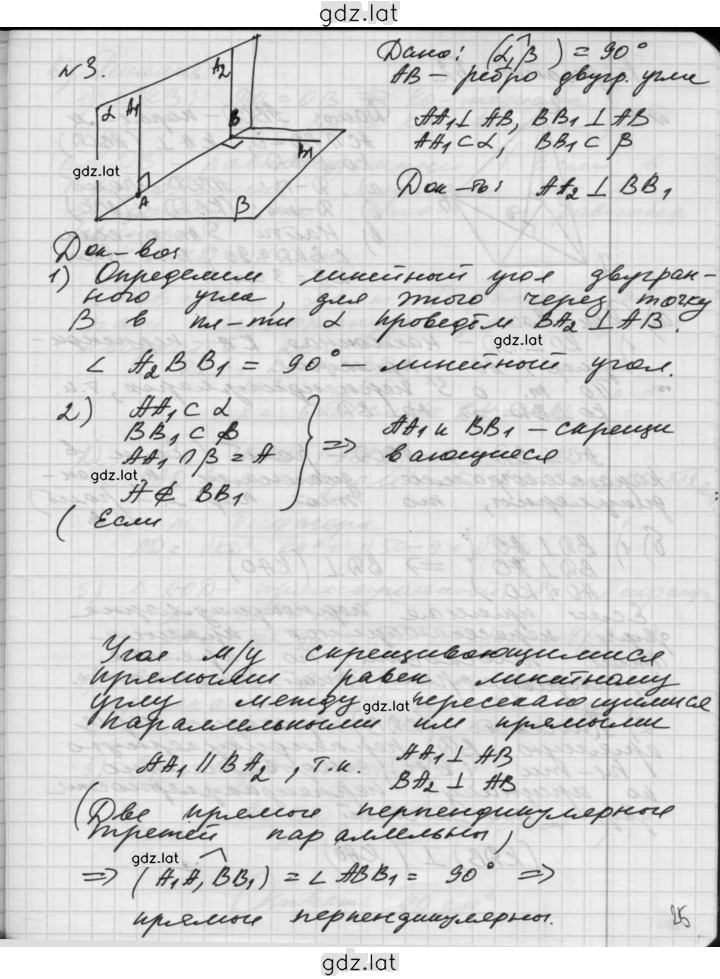 gdz.lat
№3.
A2
α
A1
B
B1
gdz.lat
A
β
Дано: (α, β) = 90°
AB – ребро двугр. угла
AA1 ⊥ AB, BB1 ⊥ AB
AA1 ⊂ α, BB1 ⊂ β
Док-ть: AA2 ⊥ BB1
Док-во:
1) Определим линейный угол двугран-
ного угла, для этого через точку
B в пл-ти α проведём BA2 ⊥ AB.
gdz.lat
∠ A2BB1 = 90° – линейный угол.
2) AA1 ⊂ α
BB1 ⊂ β
AA1 ∩ β = A
gdz.lat
A ∉ BB1
⇒ AA1 и BB1 – скрещи
вающиеся
( Если
Угол м/у скрещивающимися
прямыми равен линейному
углу между пересекающимися
параллельными им прямыми
gdz.lat
AA1 || BA2, т.к. AA1 ⊥ AB
BA2 ⊥ AB
(Две прямые перпендикулярные
третей параллельны)
gdz.lat
⇒ (A1A, BB1) = ∠ ABB1 = 90° ⇒
прямые перпендикулярны.
25
gdz.lat